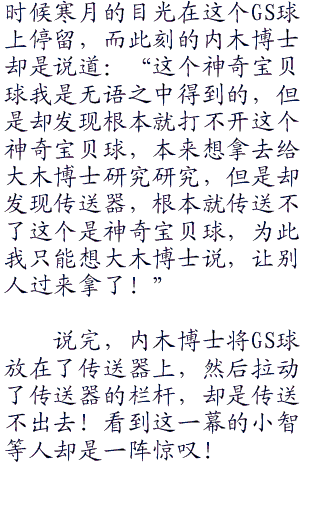 时候寒月的目光在这个GS球
上停留，而此刻的内木博士
却是说道：“这个神奇宝贝
球我是无语之中得到的，但
是却发现根本就打不开这个
神奇宝贝球，本来想拿去给
大木博士研究研究，但是却
发现传送器，根本就传送不
了这个是神奇宝贝球，为此
我只能想大木博士说，让别
人过来拿了！”
说完，内木博士将GS球
放在了传送器上，然后拉动
了传送器的栏杆，却是传送
不出去！看到这一幕的小智
等人却是一阵惊叹！